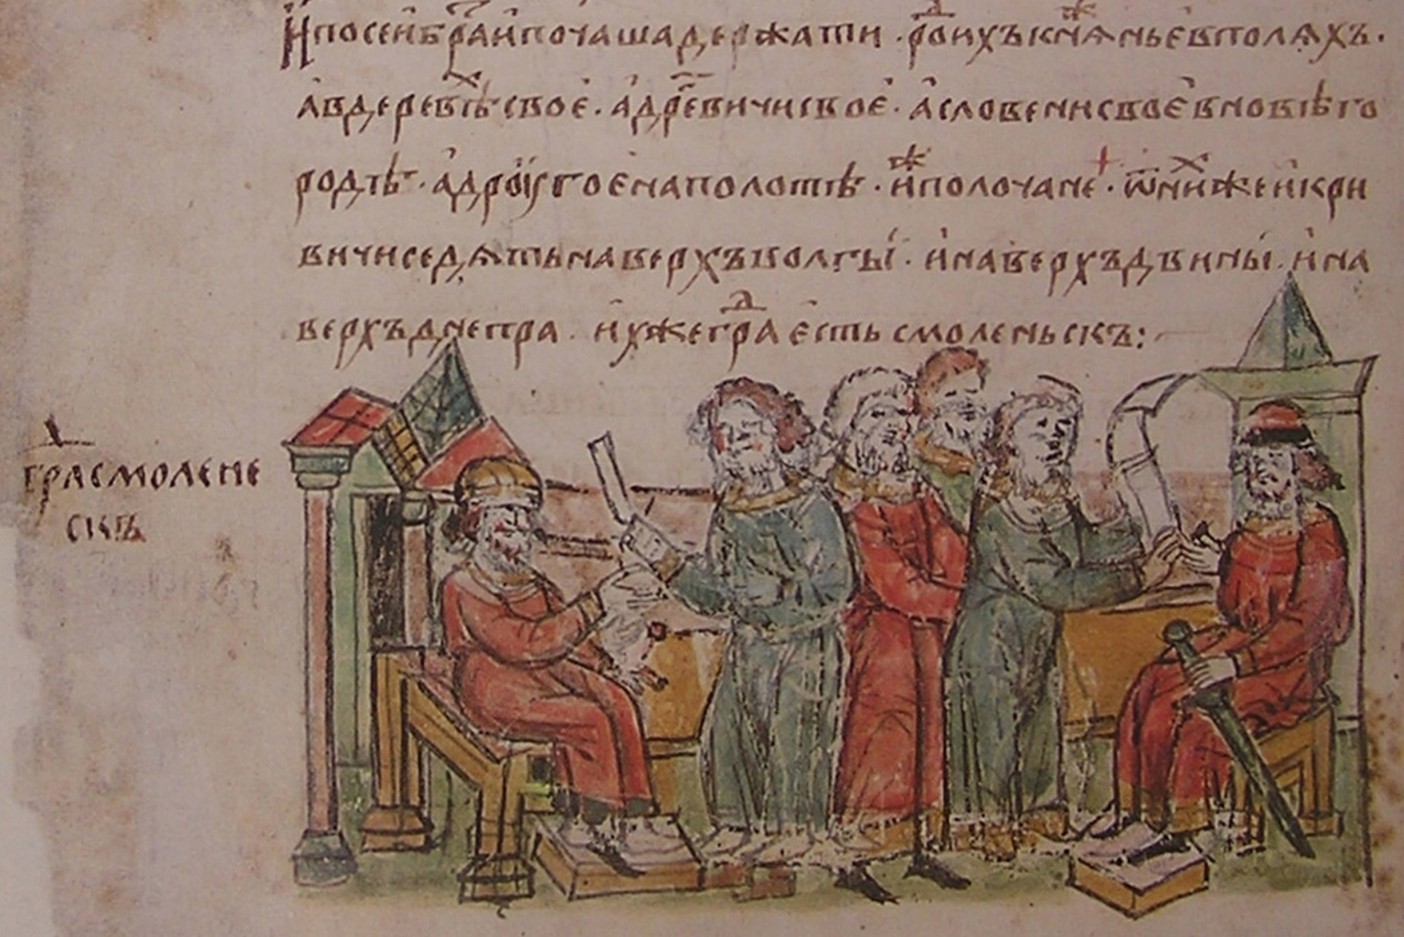 И по сеи бра҃и почаша держати рⷪ҇ ихъ кнѧжⷤнье в полѧхъ ·
а в деревлѧⷯ҇ свое · а дрег҃вичи свое · а словени свое в новѣго
родѣ · а дроугое на полотѣ · иⷤже полочане · ѿ нихⷯже и кри
вичи седѧть на верхъ волгы · и на верхъ двины · и на
верхъ днепра · ихже граⷣ есть смоленьскъ :
граⷣ смолене
скъ